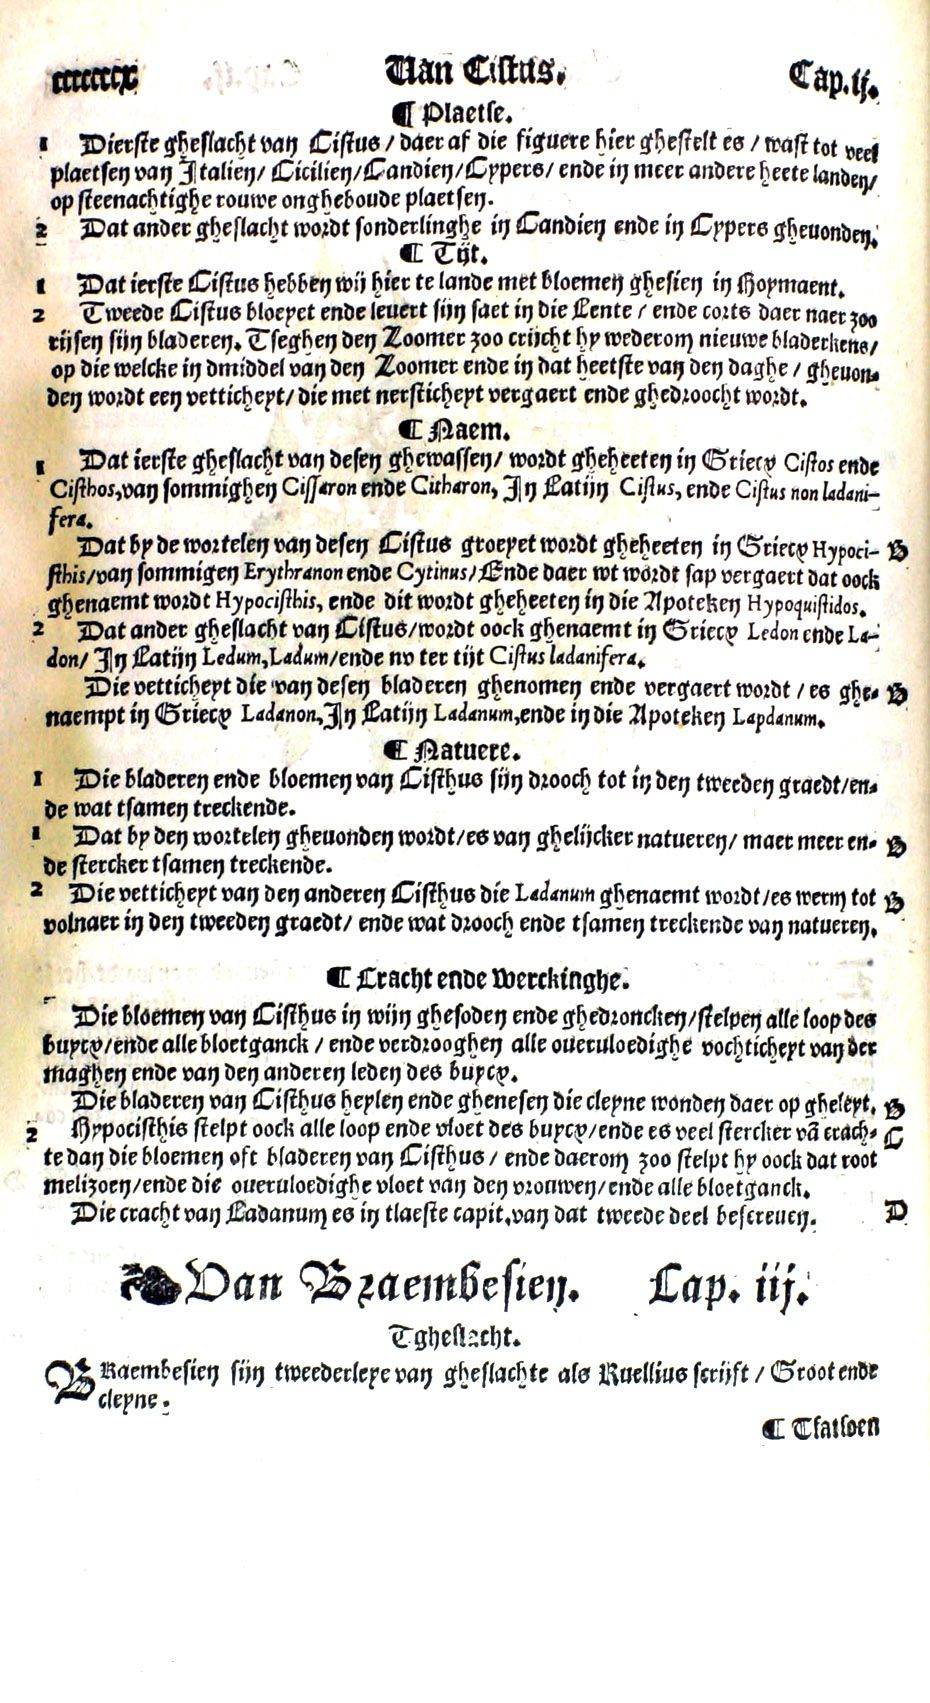 ccccccx Van Cistus. Cap.ij.
¶ Plaetse.
1 Dierste gheslacht van Cistus / daer af die figuere hier ghestelt es / wast tot veel
plaetsen van Italien/ Cicilien/Candien/Cypers/ ende in meer andere heete landen/
op steenachtighe rouwe onghehoude plaetsen.
2 Dat ander gheslacht wordt sonderlinghe in Candien ende in Cypers gheuonden.
¶ Tijt.
1 Dat ierste Cistus hebben wij hier te lande met bloemen ghesien in Hoymaent.
2 Tweede Cistus bloeyet ende leuert sijn saet in die Lente / ende corts daer naer zoo
rijsen sijn bladeren. Tseghen den Zoomer zoo crijcht hy wederom nieuwe bladerkens/
op die welcke in dmiddel van den Zoomer ende in dat heetste van den daghe / gheuon-
den wordt een vetticheyt/ die met nersticheyt vergaert ende ghedroocht wordt.
¶ Naem.
1 Dat ierste gheslacht van desen ghewassen/ wordt gheheeten in Griecx Cistos ende
Cisthos,van sommighen Cissaron ende Citharon, In Latijn Cistus, ende Cistus non ladani-
fera.
Dat by de wortelen van desen Cistus groeyet wordt gheheeten in Griecx Hypoci- B
sthis/van sommigen Erythranon ende Cytinus/Ende daer wt wordt sap vergaert dat oock
ghenaemt wordt Hypocisthis, ende dit wordt gheheeten in die Apoteken Hypoquistidos.
2 Dat ander gheslacht van Cistus/wordt oock ghenaemt in Griecx Ledon ende La-
don/ In Latijn Ledum,Ladum/ende nv ter tijt Cistus ladanifera.
Die vetticheyt die van desen bladeren ghenomen ende vergaert wordt / es ghe- B
naempt in Griecx Ladanon,In Latijn Ladanum,ende in die Apoteken Lapdanum.
¶ Natuere.
1 Die bladeren ende bloemen van Cisthus sijn drooch tot in den tweeden graedt/en-
de wat tsamen treckende.
1 Dat by den wortelen gheuonden wordt/es van ghelijcker natueren/ maer meer en- B
de stercker tsamen treckende.
2 Die vetticheyt van den anderen Cisthus die Ladanum ghenaemt wordt/es werm tot B
volnaer in den tweeden graedt/ ende wat drooch ende tsamen treckende van natueren.
¶ Cracht ende Werckinghe.
Die bloemen van Cisthus in wijn ghesoden ende ghedroncken/stelpen alle loop des
buycx/ende alle bloetganck / ende verdrooghen alle oueruloedighe vochticheyt van der
maghen ende van den anderen leden des buycx.
Die bladeren van Cisthus heylen ende ghenesen die cleyne wonden daer op gheleyt. B
2 Hypocisthis stelpt oock alle loop ende vloet des buycx/ende es veel stercker vā crach- C
te dan die bloemen oft bladeren van Cisthus / ende daerom zoo stelpt hy oock dat root
melizoen/ende die oueruloedighe vloet van den vrouwen/ende alle bloetganck.
Die cracht van Ladanum es in tlaeste capit.van dat tweede deel bescreuen. D
Van Braembesien. Cap. iij.
Tgheslacht.
BRaembesien sijn tweederleye van gheslachte als Ruellius scrijft / Groot ende
cleyne.
¶ Tfatsoen